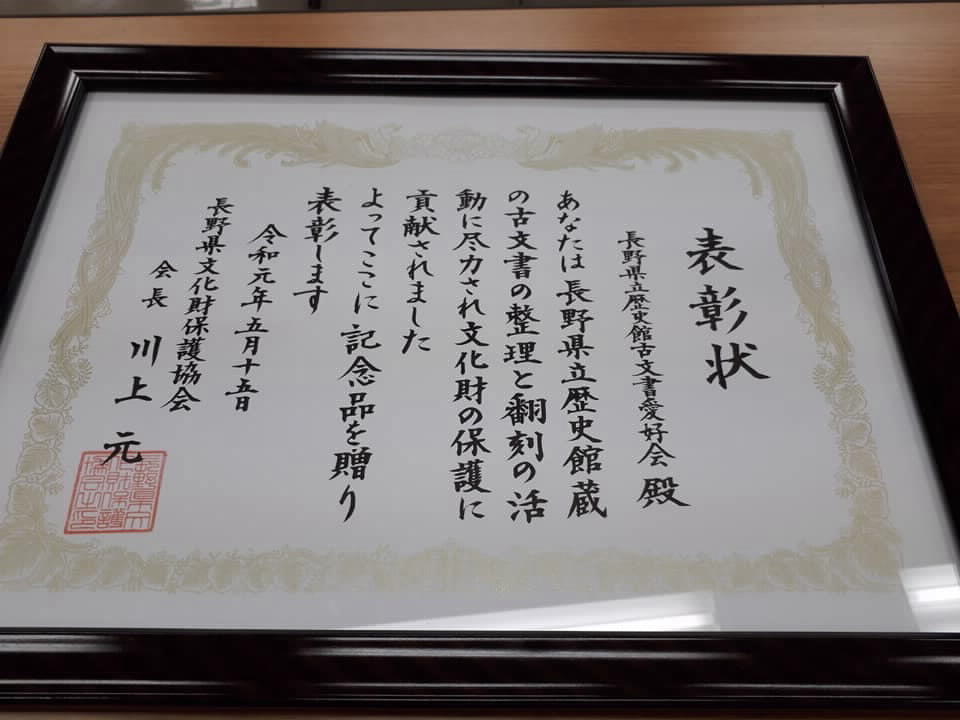 表彰状
長野県立歴史館古文書愛好会殿
あなたは長野県立歴史館蔵
の古文書の整理と翻刻の活
動に尽力され文化財の保護に
貢献されました
よってここに記念品を贈り
表彰します
令和元年五月十五日
長野県文化財保護協会
会長 川上 元